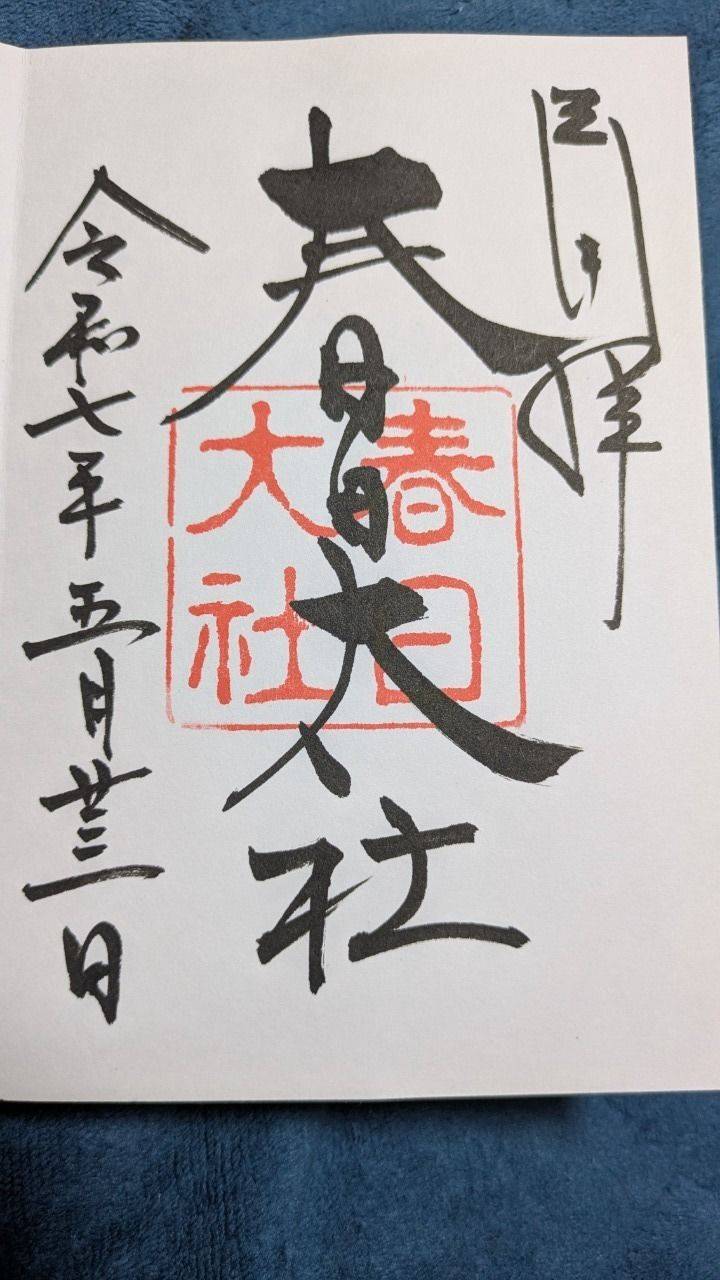 拝
春日大社
春日
大社
令和七年五月廿三日